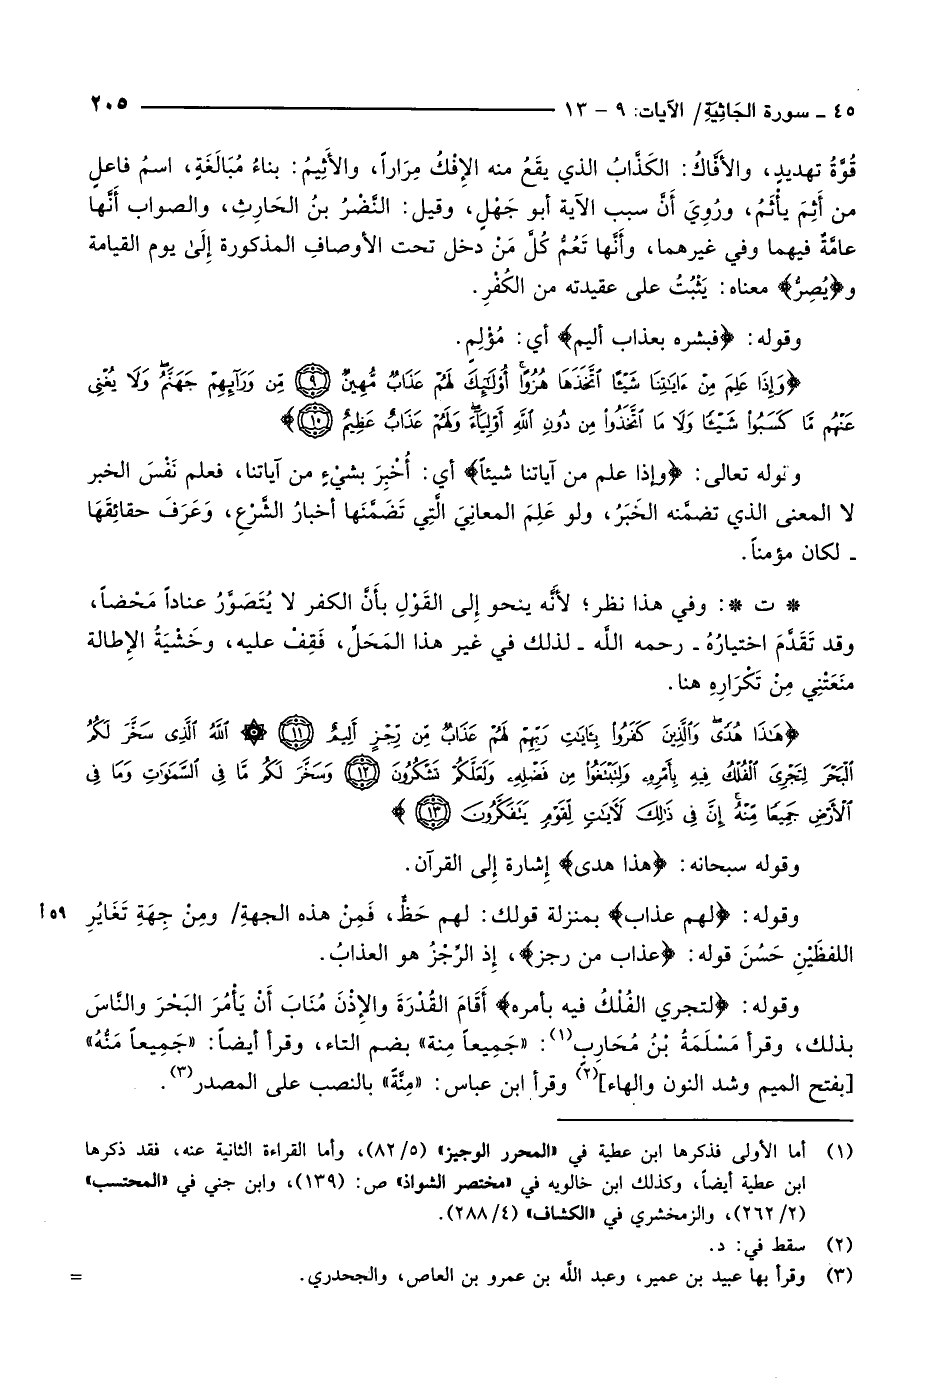 ٤٥ ـ سورة الجَاثِيَةِ/ الآيات: ٩ - ١٣ ٢٠٥
قُوَّةُ تهديدٍ، والأَفَّاكُ: الكَذَّابُ الذي يقَعُ منه الإِفْكُ مِرَاراً، والأَثِيمُ: بناءُ مُبَالَغَةٍ، اسمُ فاعلٍ
من أَثِمَ يأْثَمُ، ورُوِيَ أَنَّ سبب الآية أبو جَهْلٍ، وقيل: النَّضْرُ بنُ الحَارِثِ، والصواب أَنَّها
عامَّةٌ فيهما وفي غيرهما، وأَنَّها تَعُمُّ كُلَّ مَنْ دخل تحت الأوصافِ المذكورة إِلَىٰ يوم القيامة
و﴿يُصِرُّ﴾ معناه: يَثْبُتُ على عقيدته من الكُفْرِ.
وقوله: ﴿فبشره بعذاب أليم﴾ أي: مُؤْلِمٍ.
﴿وَإِذَا عَلِمَ مِنْ ءَايَٰتِنَا شَيْئًا ٱتَّخَذَهَا هُزُوًاۚ أُوْلَٰٓئِكَ لَهُمْ عَذَابٌ مُّهِينٌ ٩ مِّن وَرَآئِهِمْ جَهَنَّمُۖ وَلَا يُغْنِى
عَنْهُم مَّا كَسَبُواْ شَيْـًٔا وَلَا مَا ٱتَّخَذُواْ مِن دُونِ ٱللَّهِ أَوْلِيَآءَۖ وَلَهُمْ عَذَابٌ عَظِيمٌ ١٠﴾
وقوله تعالى: ﴿وإذا علم من آياتنا شيئاً﴾ أي: أُخْبِرَ بشيْءٍ من آياتنا، فعلم نَفْسَ الخبر
لا المعنى الذي تضمَّنه الخَبَرُ، ولو عَلِمَ المعانِيَ الَّتِي تَضَمَّنَها أخبارُ الشَّرْعِ، وَعَرَفَ حقائِقَهَا
ـ لكان مؤمناً.
* ت *: وفي هذا نظر؛ لأَنَّه ينحو إلى القَوْلِ بأَنَّ الكفر لا يُتَصَوَّرُ عناداً مَحْضاً،
وقد تَقَدَّمَ اختيارُهُ ـ رحمه اللَّه ـ لذلك في غير هذا المَحَلِّ، فَقِفْ عليه، وخَشْيَةُ الإِطالة
منَعَتْنِي مِنْ تَكْرَارِهِ هنا.
﴿هَٰذَا هُدًىۖ وَٱلَّذِينَ كَفَرُواْ بِـَٔايَٰتِ رَبِّهِمْ لَهُمْ عَذَابٌ مِّن رِّجْزٍ أَلِيمٌ ١١ ۞ ٱللَّهُ ٱلَّذِى سَخَّرَ لَكُمُ
ٱلْبَحْرَ لِتَجْرِىَ ٱلْفُلْكُ فِيهِ بِأَمْرِهِۦ وَلِتَبْتَغُواْ مِن فَضْلِهِۦ وَلَعَلَّكُمْ تَشْكُرُونَ ١٢ وَسَخَّرَ لَكُم مَّا فِى ٱلسَّمَٰوَٰتِ وَمَا فِى
ٱلْأَرْضِ جَمِيعًا مِّنْهُۚ إِنَّ فِى ذَٰلِكَ لَأٓيَٰتٍ لِّقَوْمٍ يَتَفَكَّرُونَ ١٣﴾
وقوله سبحانه: ﴿هذا هدى﴾ إشارة إلى القرآن.
وقوله: ﴿لهم عذاب﴾ بمنزلة قولك: لهم حَظٌّ، فَمِنْ هذه الجهةِ/ ومِنْ جِهَةِ تَغَايُرِ ٥٩ أ
اللفظَيْنِ حَسُنَ قوله: ﴿عذاب من رجز﴾، إذ الرِّجْزُ هو العذابُ.
وقوله: ﴿لتجري الفُلْكُ فيه بأمره﴾ أَقَامَ القُدْرَةَ والإِذْنَ مُنَابَ أَنْ يأْمُرَ البَحْرَ والنَّاسَ
بذلك، وقرأ مَسْلَمَةُ بْنُ مُحَارِبٍ(١): «جَمِيعاً مِنةُ» بضم التاء، وقرأ أيضاً: «جَمِيعاً مَنُّهُ»
[بفتح الميم وشد النون والهاء](٢) وقرأ ابن عباس: «مِنَّةً» بالنصب على المصدر(٣).
(١) أما الأولى فذكرها ابن عطية في «المحرر الوجيز» (٨٢/٥)، وأما القراءة الثانية عنه، فقد ذكرها
ابن عطية أيضاً، وكذلك ابن خالويه في «مختصر الشواذ» ص: (١٣٩)، وابن جني في «المحتسب»
(٢/ ٢٦٢)، والزمخشري في «الكشاف» (٢٨٨/٤).
(٢) سقط في: د.
(٣) وقرأ بها عبيد بن عمير، وعبد اللَّه بن عمرو بن العاص، والجحدري. =